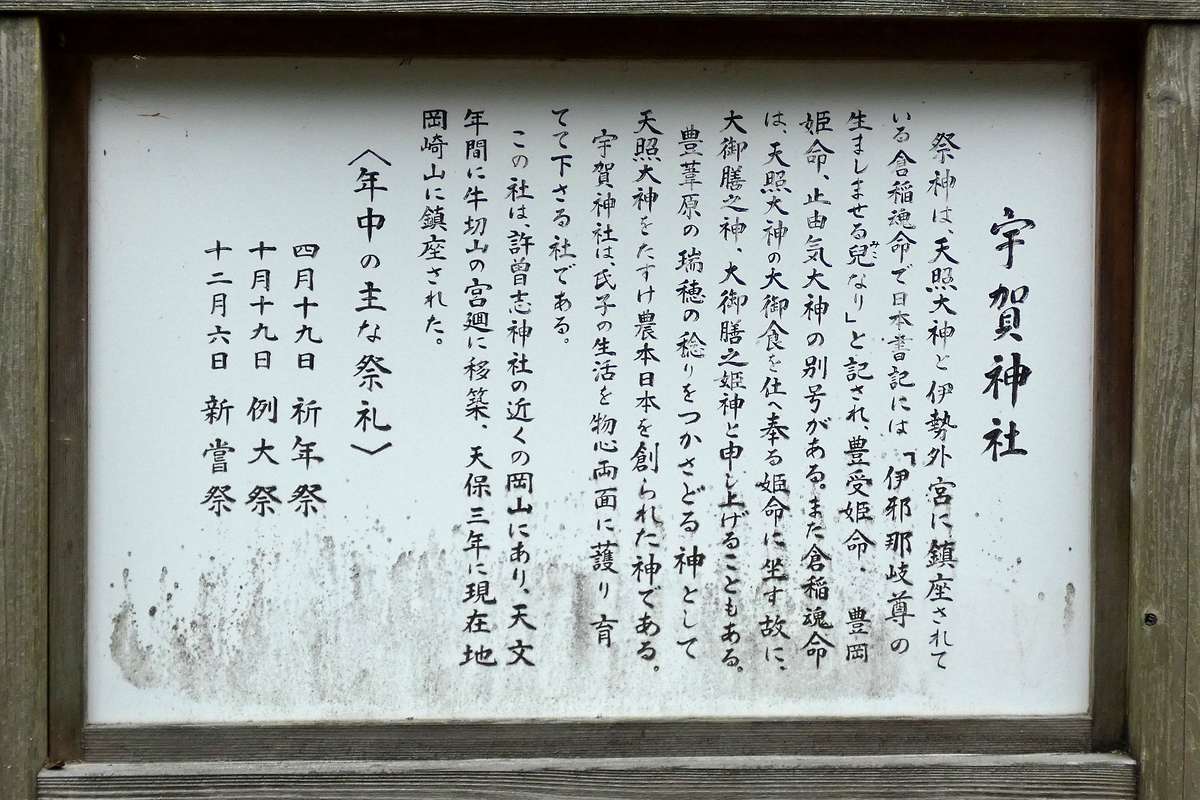 宇賀神社
祭神は、天照大神と伊勢外宮に鎮座されて
いる倉稲魂命で日本書記には「伊邪那岐尊の
生ましませる兒みこなり」と記され、豊受姫命、豊岡
姫命、止由気大神の別号がある。また倉稲魂命
は、天照大神の大御食を仕へ奉る姫命に坐す故に、
大御膳之神、大御膳之姫神と申し上げることもある。
豊葦原の瑞穂の稔りをつかさどる神として
天照大神をたすけ農本日本を創られた神である。
宇賀神社は、氏子の生活を物心両面に護り育
てて下さる社である。
この社は、許曽志神社の近くの岡山にあり、天文
年間に牛切山の宮廻に移築、天保三年に現在地
岡崎山に鎮座された。
〈年中の主な祭礼〉
四月十九日 祈年祭
十月十九日 例大祭
十二月六日 新嘗祭